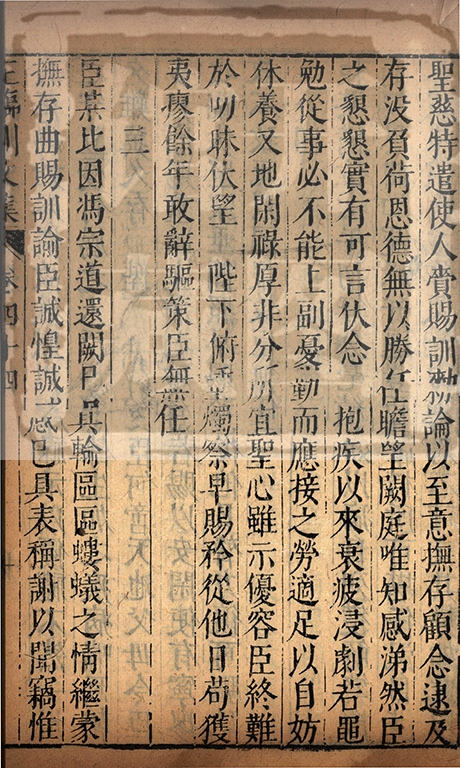 聖慈特遣使人賫賜訓勑諭以至意撫存顧念逮及
存没負荷恩德無以勝任瞻望闕庭唯知感涕然臣
之懇懇實有可言伏念 抱疾以來衰疲浸劇若黽
勉從事必不能上副憂勤而應接之勞適足以自妨
休養又地閑祿厚非分所宜聖心雖示優容臣終難
於叨昧伏望 陛下俯垂燭察早賜矜從他日苟獲
夷瘳餘年敢辭驅策臣無任
臣某比因馮宗道還闕已具輸區區螻蟻之情繼蒙
撫存曲賜訓諭臣誠惶誠感已具表稱謝以聞竊惟
臨川文集 卷四十四